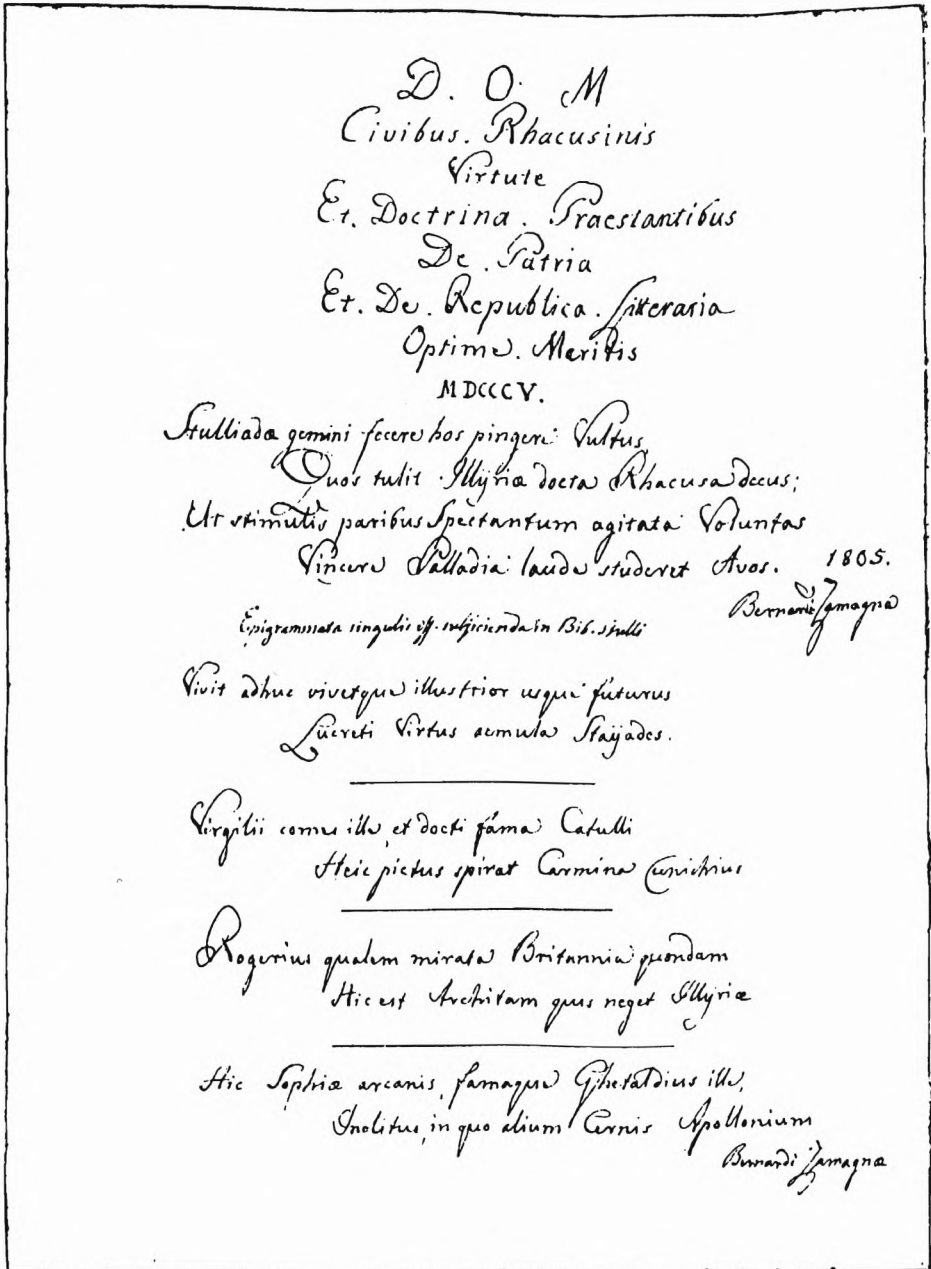 D. O. M
Civibus. Rhacusinis
Virtute
Et. Doctrina. Praestantibus
De. Patria
Et. De. Republica. Litteraria
Optime. Meritis
MDCCCV.
Stulliadæ gemini fecere hos pingere Vultus,
Quos tulit Illÿriæ docta Rhacusa decus;
Ut stimulis paribus Spectantum agitata Voluntas
Vincere Palladia laude studeret Avos. 1805.
Bernardi Zamagna
Epigrammata singulis eff. subjicienda in Bib. Stulli
Vivit adhuc vivetque illustrior usque futurus
Lucreti Virtus aemula Staÿades.
Virgilii comes ille, et docti fama Catulli
Heic pictus spirat Carmina Cunichius
Rogerius qualem mirata Britannia quondam
Hic est Architam quis neget Illÿriæ
Hic Sophiæ arcanis, famaque Ghetaldius ille,
Inclitus, in quo alium Cernis Apollonium
Bernardi Zamagnæ